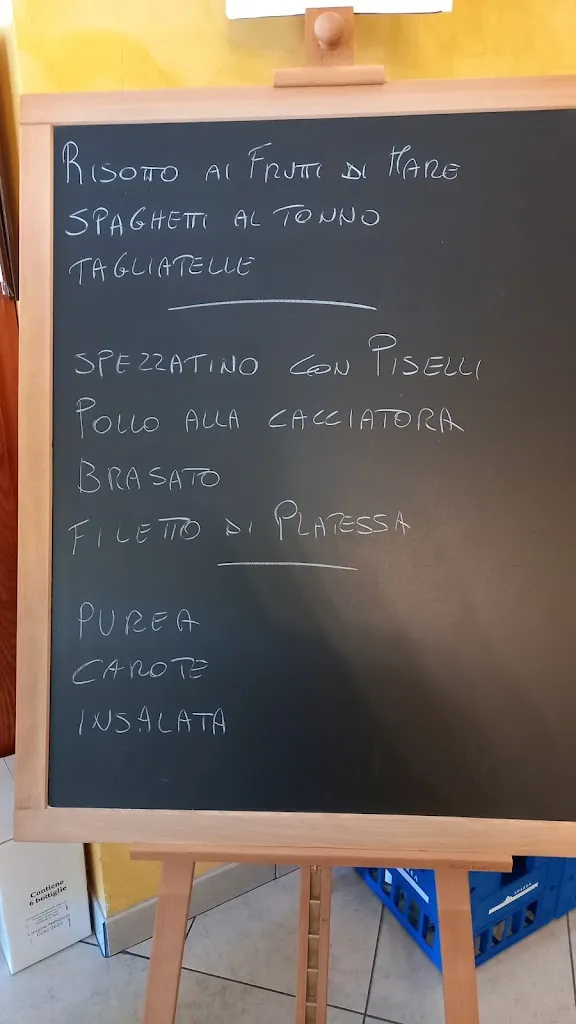 RISOTTO AI FRUTTI DI MARE
SPAGHETTI AL TONNO
TAGLIATELLE
SPEZZATINO CON PISELLI
POLLO ALLA CACCIATORA
BRASATO
FILETTO DI PLATESSA
PUREA
CAROTE
INSALATA
Contiene
6 bottiglie